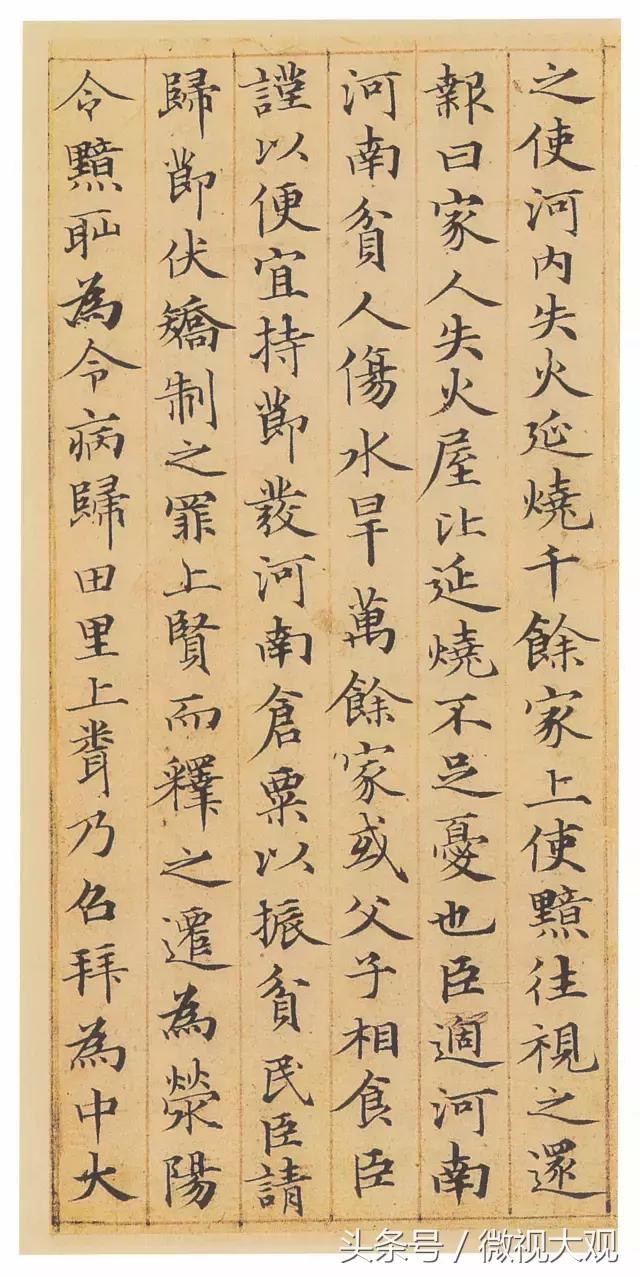 之使河内失火延燒千餘家上使黯往視之還
報曰家人失火屋比延燒不足憂也臣適河南
河南貧人傷水旱萬餘家或父子相食臣
謹以便宜持節發河南倉粟以振貧民臣請
歸節伏矯制之罪上賢而釋之遷為滎陽
令黯恥為令病歸田里上聞乃召拜為中大
头条号 / 微视大观